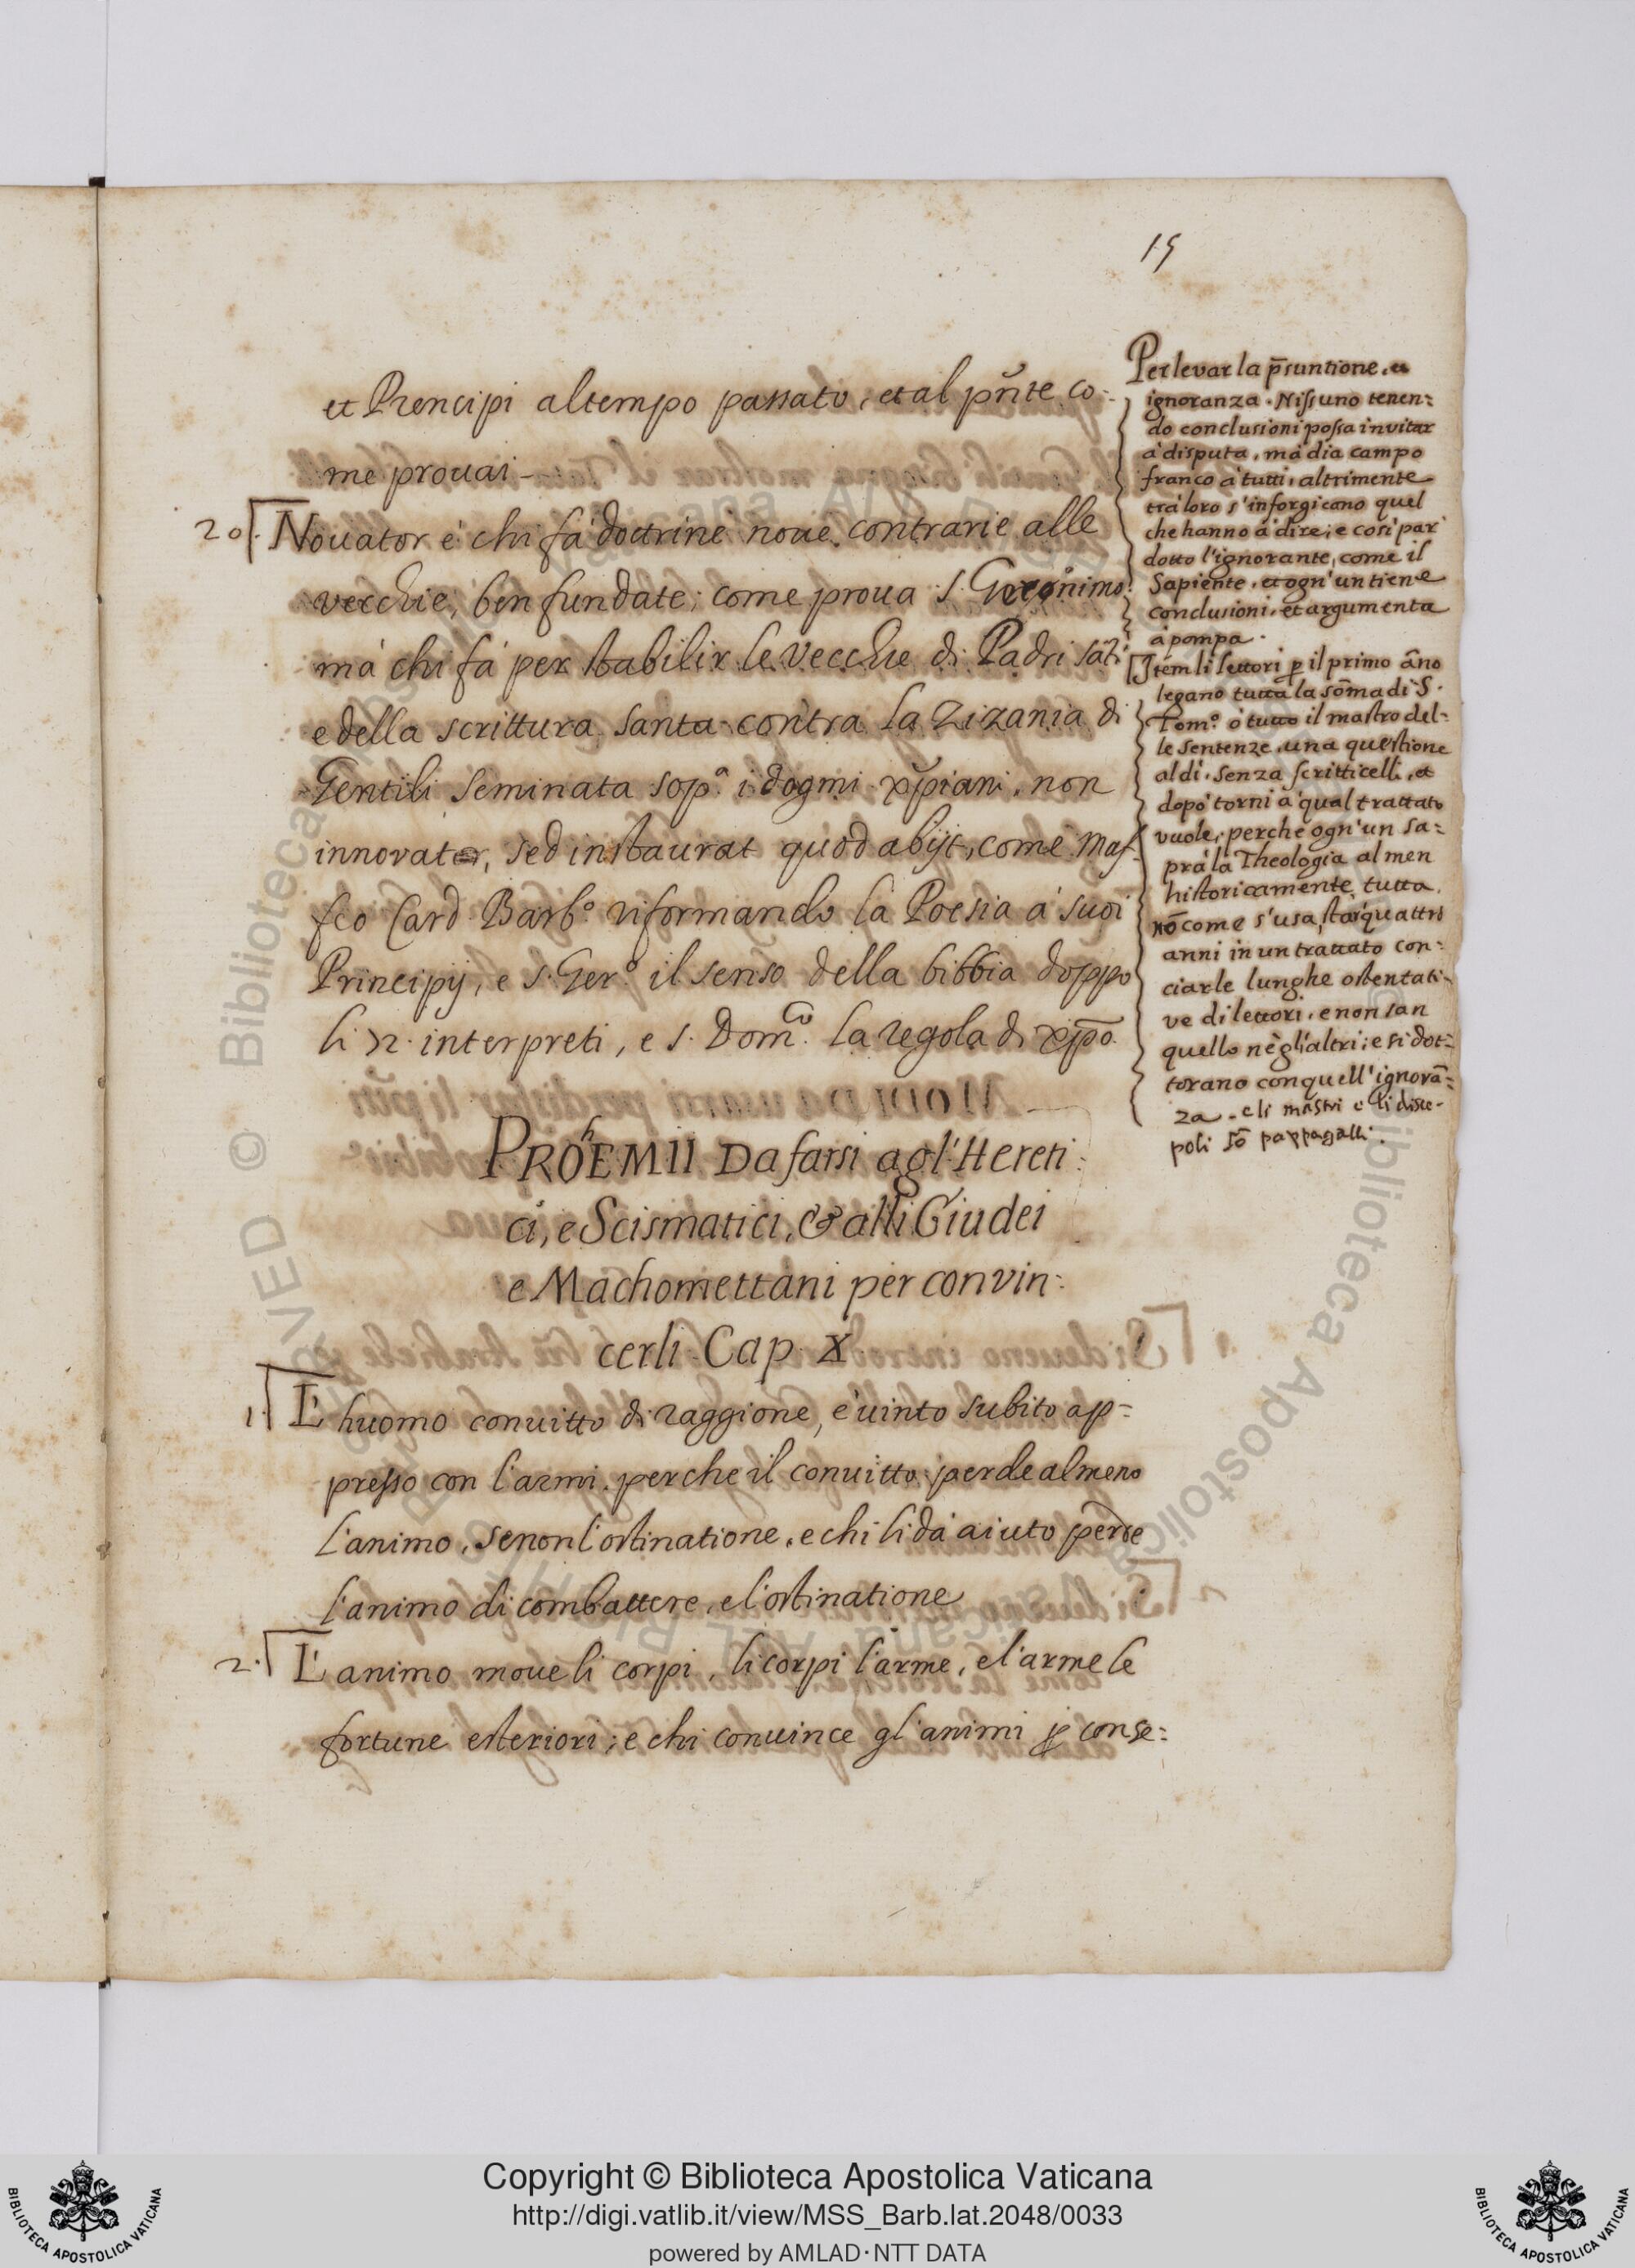 15
et Prencipi al tempo passato, et al pn̄te co-
me prouai -
20. Nouator è chi fà dottrine noue contrarie alle
vecchie, ben fundate; come proua S. Geronimo:
mà chi fà per stabilir le vecchie di Padri sāti
e della scrittura santa contra la Zizania di
Gentili seminata sop.ª i dogmi xp̄iani, non
innovator, sed instaurat quod abijt, come Maf-
feo Card Barb.º riformando la Poesia à suoi
Principij, e S. Ger.º il senso della bibbia doppo
li 72. interpreti, e S. Dom.co la regola di xp̄o.
PROhEMII Da farsi agl' Hereti:
ci, e Scismatici, & alli Giudei
e Machomettani per convin:
cerli. Cap. X.
1. L' huomo conuitto di raggione, è uinto subito ap=
presso con l'armi. perche il conuitto perde almeno
l'animo, se non l'ostinatione. e chi li dà aiuto perde
l'animo di combattere, e l'ostinatione
2. L' animo moue li corpi, li corpi l'arme, e l'arme le
fortune esteriori; e chi conuince gl'animi p conse:
Per levar la p̄suntione, et
ignoranza. Nissuno tenen:
do conclusioni possa invitar
à disputa, mà dia campo
franco à tutti, altrimente
trà loro s'inforgicano quel
che hanno à dire; e così par
dotto l'ignorante, come il
Sapiente, et ogn' un tiene
conclusioni, et argumenta
à pompa.
Item li lettori p il primo āno
legano tutta la sōma di S.
Tom.º ò tutto il mastro del-
le sentenze, una questione
al dì, senza scritticelli, et
dopò torni à qual trattato
vuole, perche ogn' un sa=
prà la Theologia al men
historicamente tutta,
nō come s'usa, star quattro
anni in un trattato con:
ciarle lunghe ostentati-
ve di lettori, e non san
quello nè gl'altri; e si dot:
torano con quell' ignorā=
za. e li mastri e li disce-
poli sō pappagalli.
Copyright © Biblioteca Apostolica Vaticana
http://digi.vatlib.it/view/MSS_Barb.lat.2048/0033
powered by AMLAD·NTT DATA
BIBLIOTECA APOSTOLICA VATICANA
BIBLIOTECA APOSTOLICA VATICANA